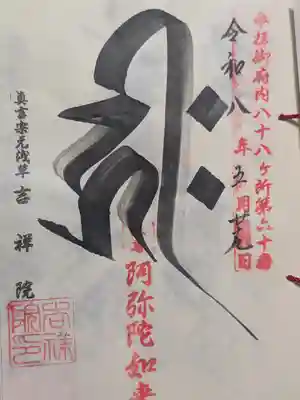 奉拝御府内八十八ヶ所第六十番
令和八年五月廿九日
阿弥陀如来
真言宗元浅草 吉祥院
吉祥院印